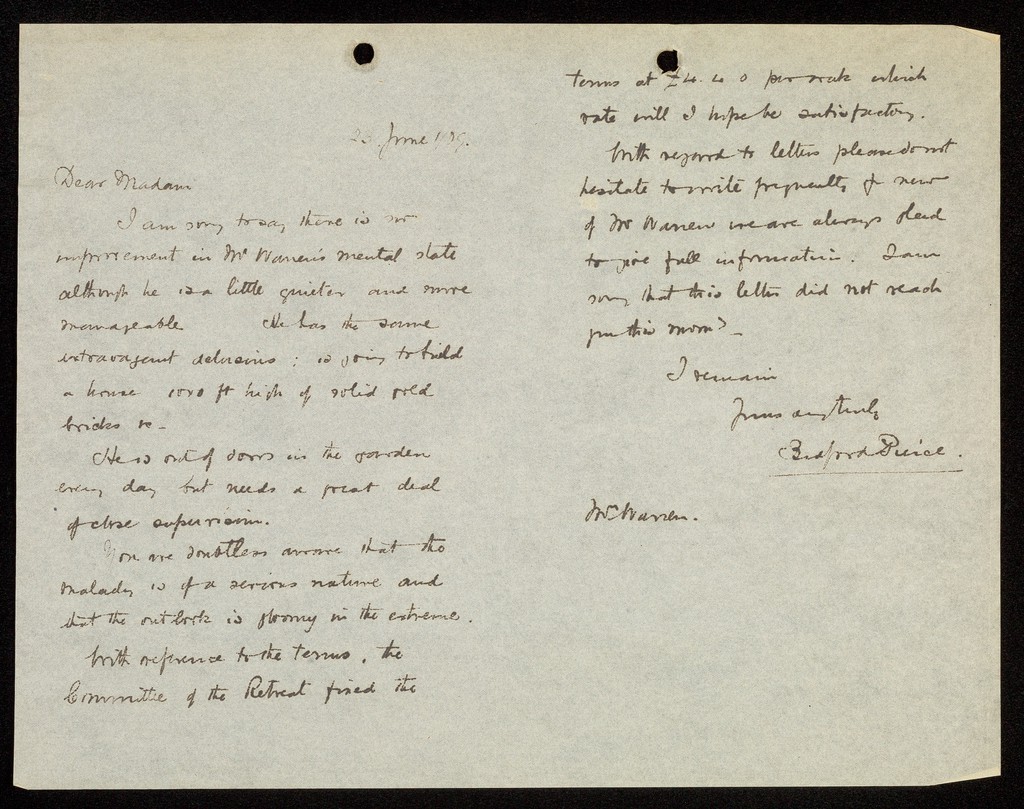 June 1909.
Dear Madam
I am sorry to say there is no
improvement in Mr Warren's mental state
although he is a little quieter and more
manageable He has the same
extravagant delusions; is going to build
a house 1000 ft high of solid gold
bricks &c -
He is out of doors in the garden
every day but needs a great deal
of close supervision.
You are doubtless aware that the
malady is of a serious nature and
that the outlook is gloomy in the extreme.
With reference to the terms, the
Committee of the Retreat fixed the
terms at £4. 4 0 per week which
rate will I hope be satisfactory.
With regard to letters please do not
hesitate to write frequently for news
of Mr Warren we are always glad
to give full information. I am
sorry that this letter did not reach
you this morng -
I remain
Yours very truly
Bedford Pierce.
Mrs Warren.